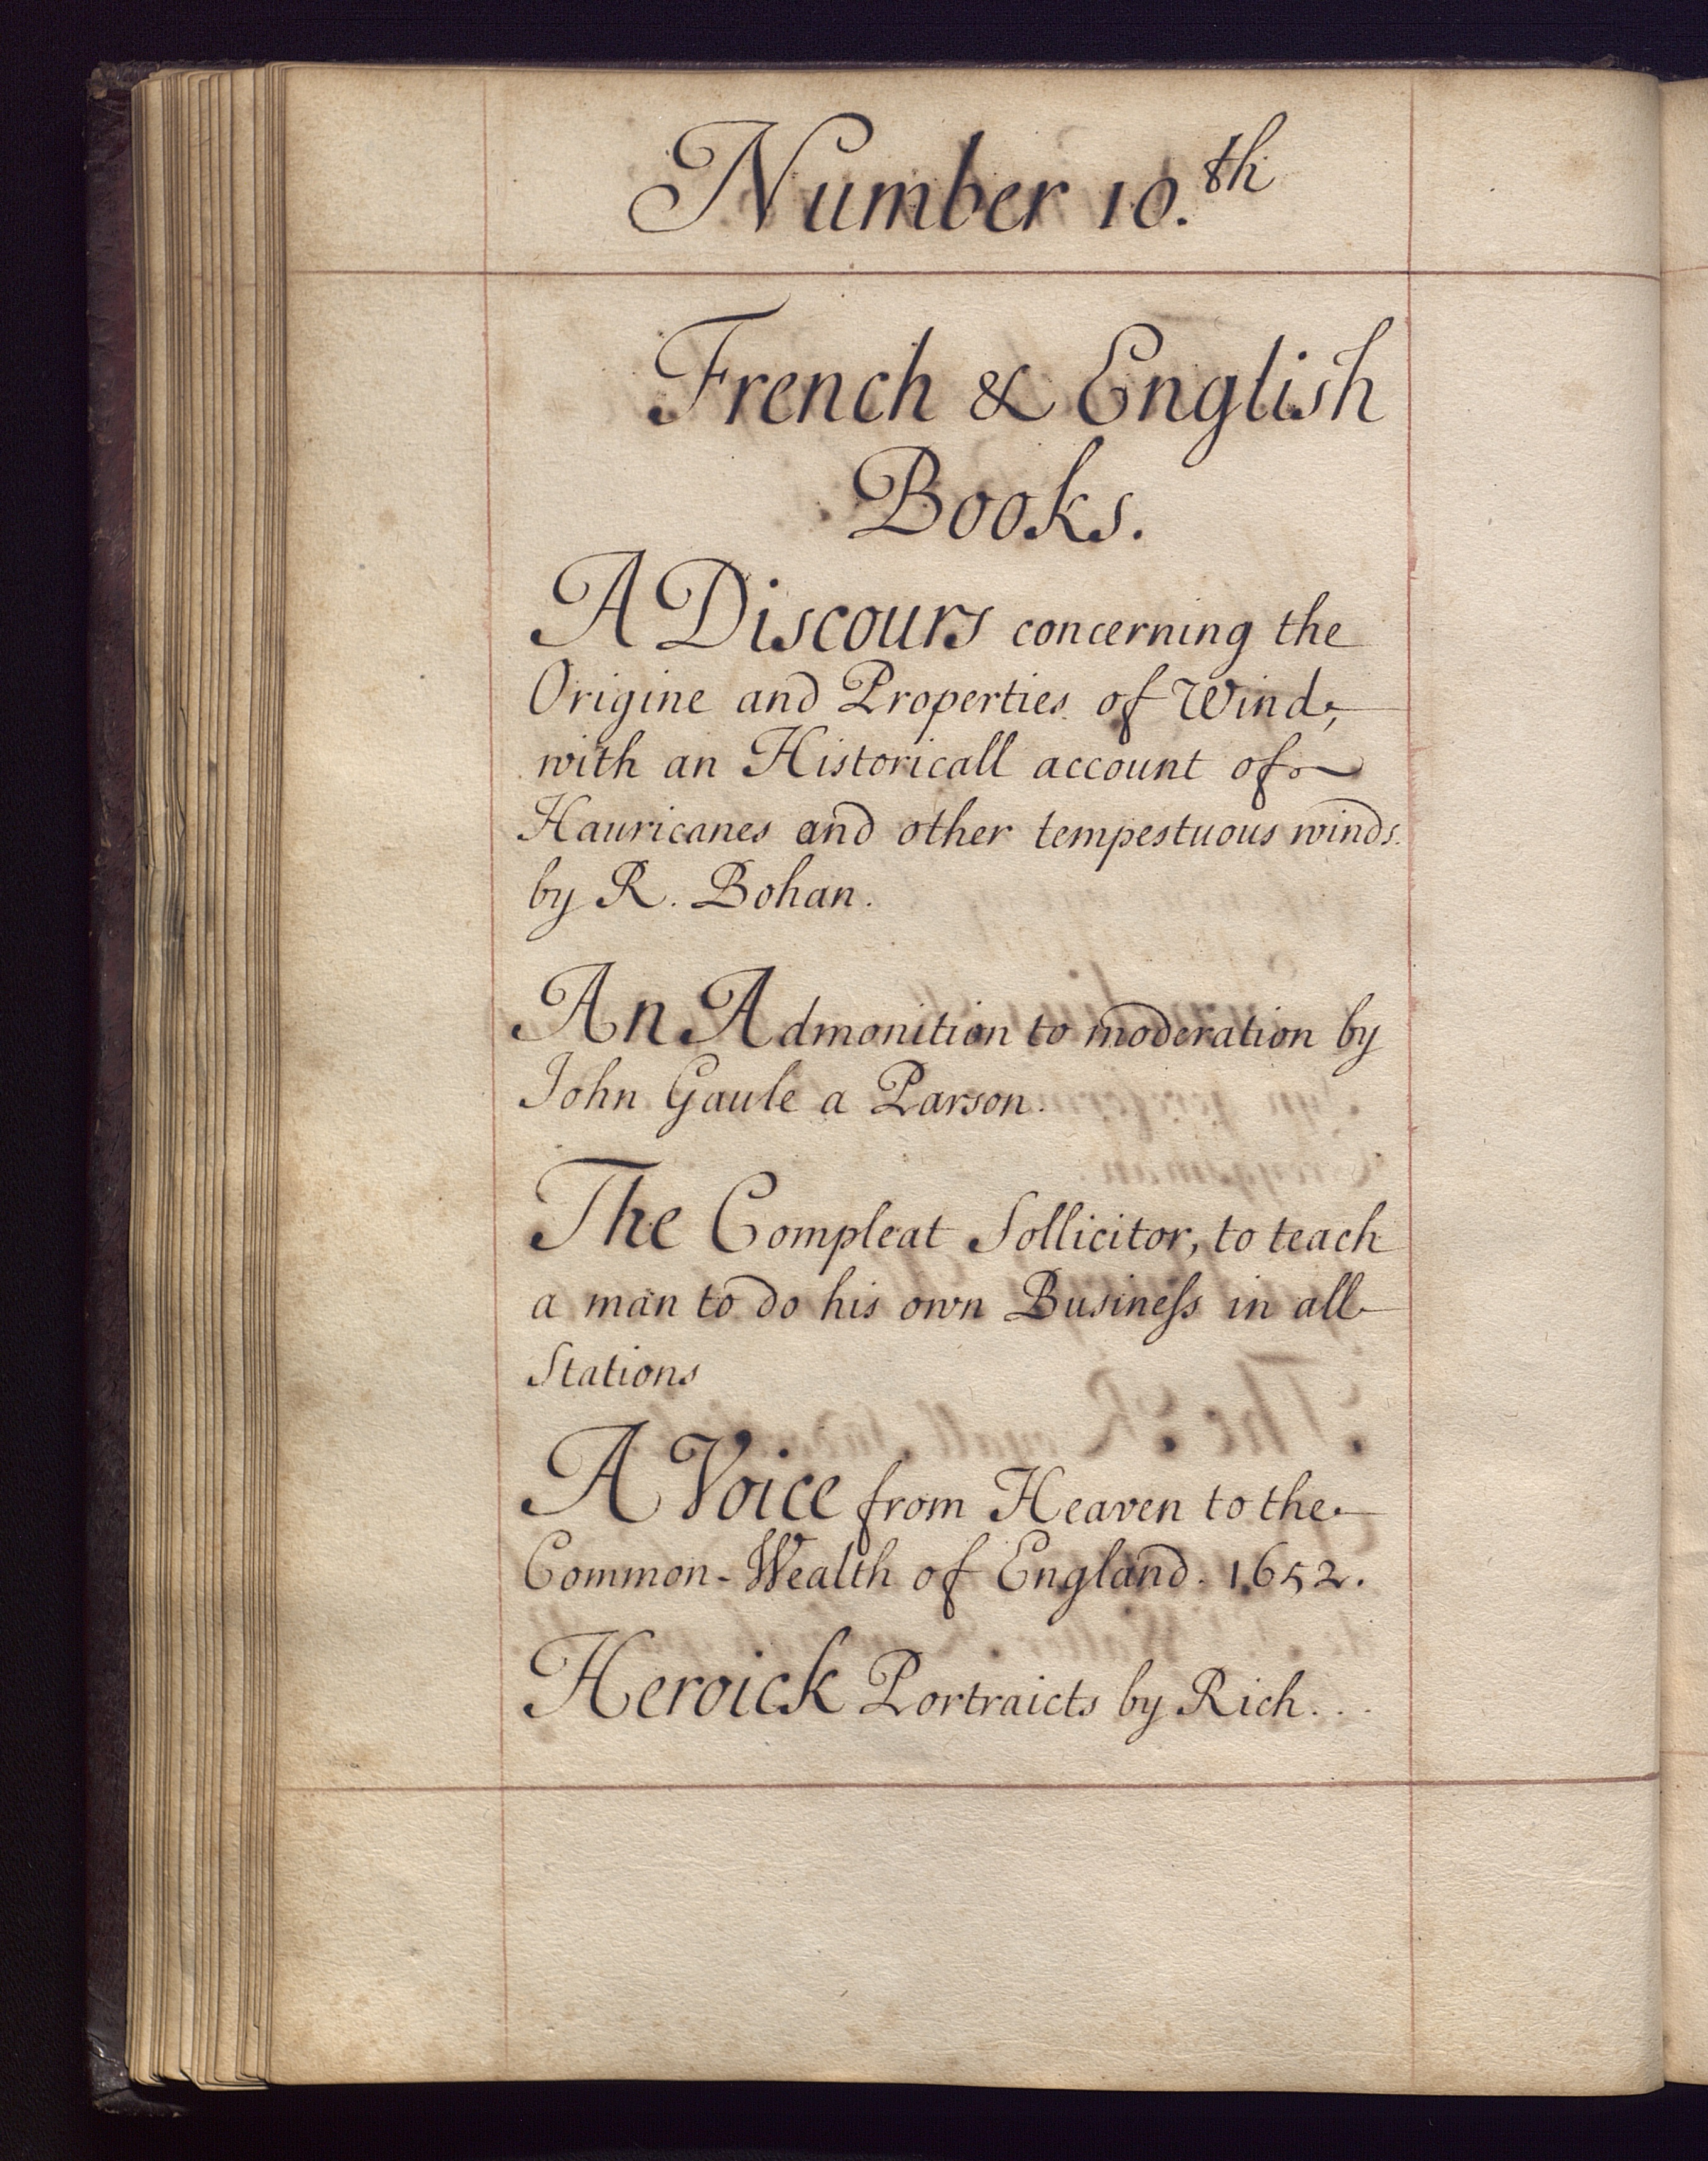 Number 10.th
French & English
Books.
A Discours concerning the
Origine and Properties of Wind,
with an Historicall account of
Hauricanes and other tempestuous winds.
by R. Bohan.
An Admonition to moderation by
John Gaule a Parson.
The Compleat Sollicitor, to teach
a man to do his own Busineſs in all
Stations
A Voice from Heaven to the
Common-Wealth of England. 1652.
Heroick Portraicts by Rich...